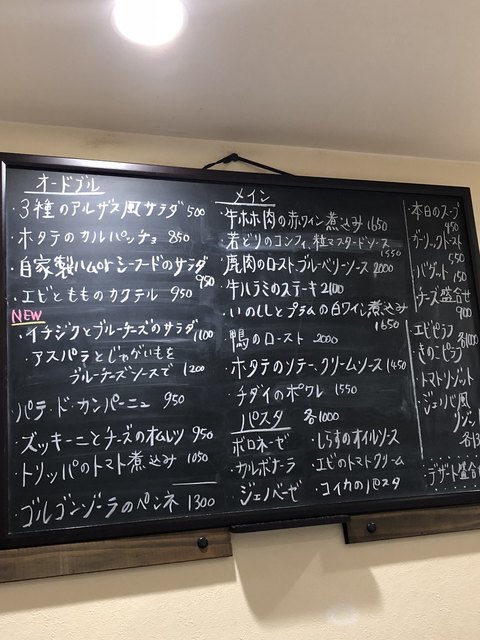 オードブル
・3種のアルザス風サラダ 500
・ホタテのカルパッチョ 850
・自家製ハムorシーフードのサラダ
950
・エビとももカクテル 950
NEW
・イチジクとブルーチーズのサラダ 1100
・アスパラとじゃがいもを
ブルーチーズソースで 1200
・パテ・ド・カンパーニュ 950
・ズッキーニとチーズのオムレツ 950
・トリッパのトマト煮込み 1050
・ゴルゴンゾーラのペンネ 1300
メイン
・牛ホホ肉の赤ワイン煮込み 1650
・若どりのコンフィ、粒マスタードソース
1550
・鹿肉のロースト、ブルーベリーソース 2000
・牛ハラミのステーキ 2100
・いのししとプラムの白ワイン煮込み
1650
・鴨のロースト 2000
・ホタテのソテー、クリームソース 1450
・チダイのポワレ 1550
パスタ 各1000
・ボロネーゼ ・しらすのオイルソース
・カルボナーラ ・エビのトマトクリーム
・ジェノベーゼ ・コイカのパスタ
・本日のスープ
450
・ガーリックトースト
550
・バゲット 150
・チーズ盛合せ
900
・エビピラフ
各1000
・きのこピラフ
・トマトリゾット
・ジェノバ風
リゾッ
各13
・デザート盛合